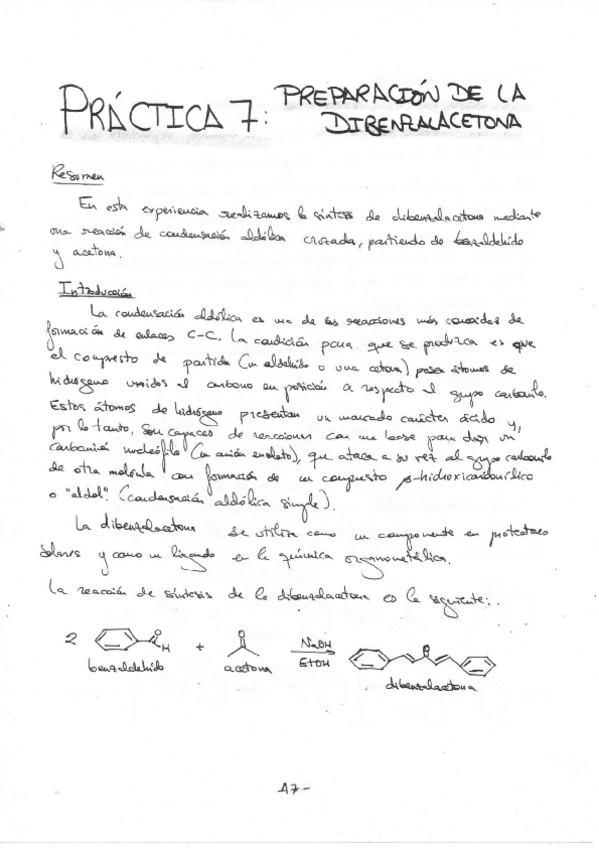 PRÁCTICA 7: PREPARACIÓN DE LA
DIBENZALACETONA
Resumen
En esta experiencia realizamos la síntesis de dibenzalacetona mediante
una reacción de condensación aldólica cruzada, partiendo de benzaldehído
y acetona.
Introducción
La condensación aldólica es una de las reacciones más conocidas de
formación de enlaces C-C. La condición para que se produzca es que
el compuesto de partida (un aldehído o una cetona) posea átomos de
hidrógeno unidos al carbono en posición α respecto al grupo carbonilo.
Estos átomos de hidrógeno presentan un marcado carácter ácido y,
por lo tanto, son capaces de reaccionar con una base para dar un
carbanión nucleófilo (un anión enolato), que ataca a su vez al grupo carbonilo
de otra molécula con formación de un compuesto β-hidroxicarbonílico
o "aldol". (condensación aldólica simple).
La dibenzalacetona se utiliza como un componente en protectores
solares y como un ligando en la química organometálica.
La reacción de síntesis de la dibenzalacetona es la siguiente:
2 O H + O NaOH O
EtOH
benzaldehído acetona
dibenzalacetona
17-